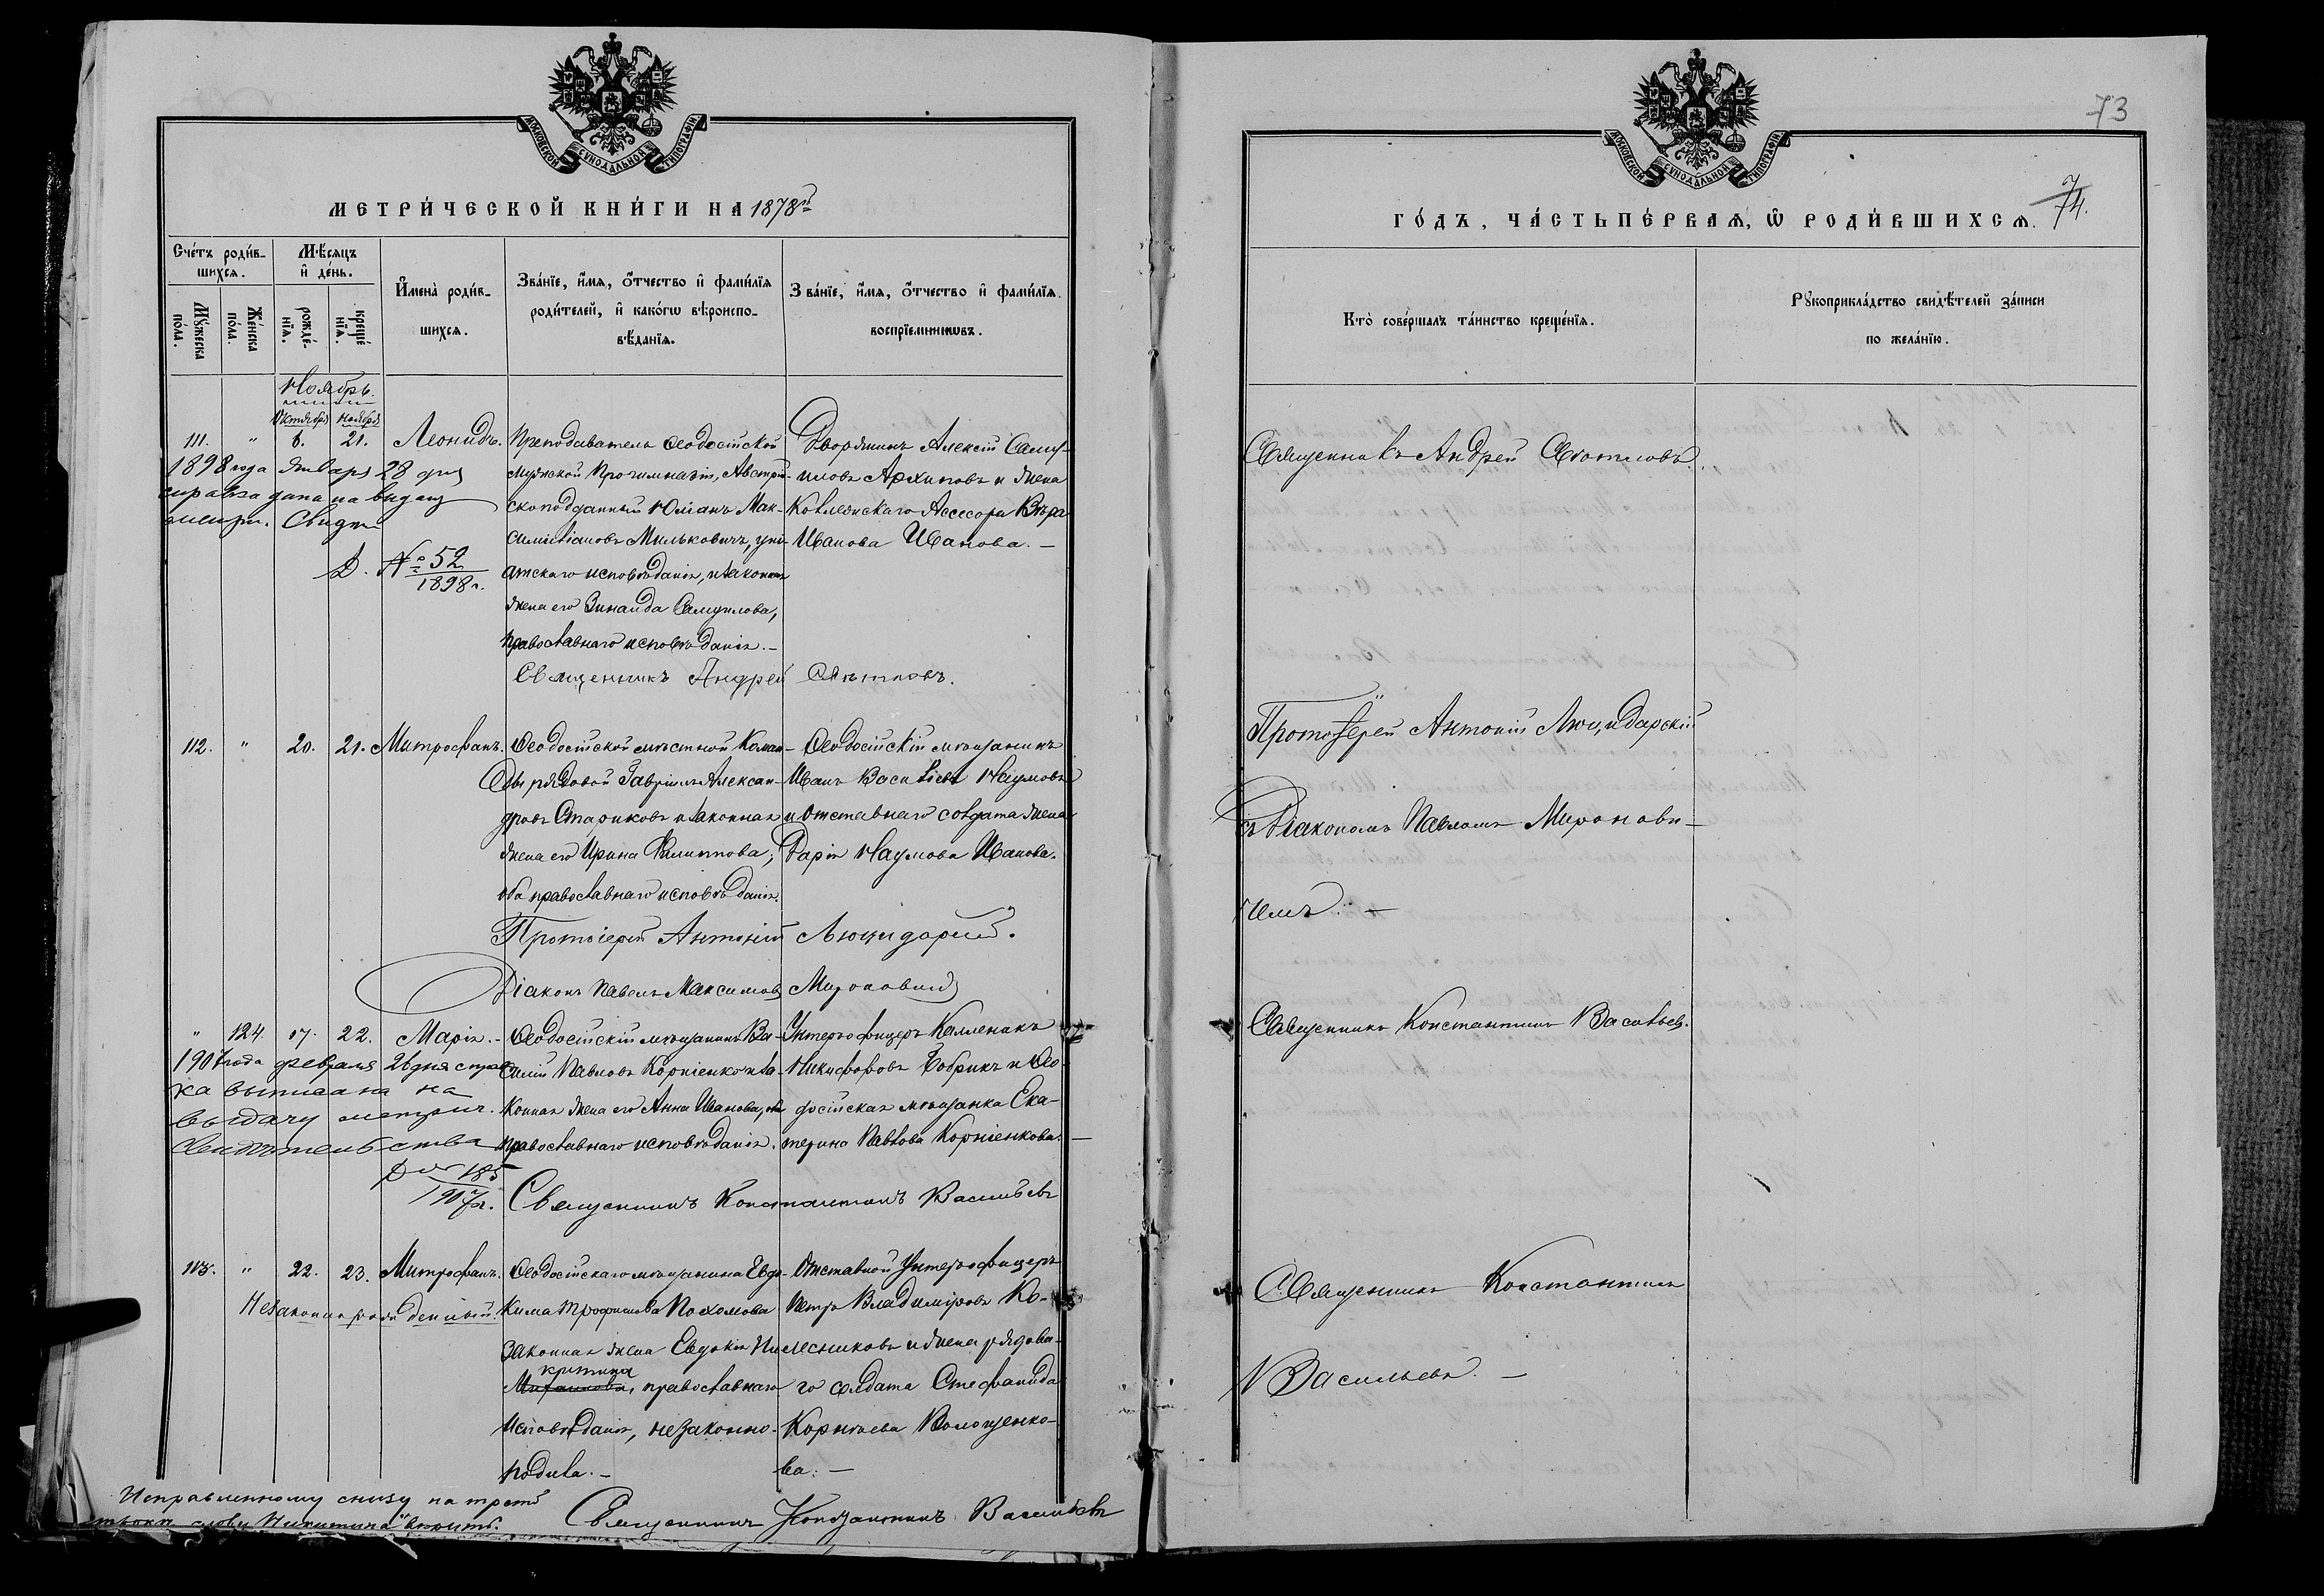 МОСКОВСКОЙ СѴНОДАЛЬНОЙ ТИПОГРАФІИ
МЕТРИ́ЧЕСКОЙ КНИ́ГИ НА 1878й
Сче́тъ роди́в-
шихся.
Мѣ́сяцъ
и҆ де́нь.
Мꙋ́жеска
по́ла.
Же́нска
по́ла.
рожде́-
нїѧ.
креще́
нїѧ.
И҆мена̀ роди́в-
шихся.
Зва́нїе, и҆́мѧ, ѻ҆́тчество и҆ фами́лїѧ
роди́телей, и҆ како́гѡ вѣроиспо-
вѣ́данїѧ.
Зва́нїе, и҆́мѧ, ѻ҆́тчество и҆ фами́лїѧ.
воспрїемникѡвъ.
Ноябрь.
Октября Ноября
111. " 8. 21. Леонидъ.
Преподаватель Ѳеодосійской
мужской Прогимназіи, Австрій-
скоподданный Юліанъ Мак-
симиліановъ Мильковичъ, уні-
атскаго исповѣданія, и законная
жена его Зинаида Самуилова,
православнаго исповѣданія.–
Дворянинъ Алексій Саму-
иловъ Архиповъ и жена
Коллежскаго Ассесора Вѣра
Иванова Иванова.–
1898 года Января 28 дня
справка дана на выдачу
метри. Свидѣт
Д. № 52
1898 г.
Священникъ Андрей Свѣтловъ.
112. " 20. 21. Митрофанъ.
Ѳеодосійской мѣстной Коман-
ды рядовой Гавріилъ Алексан-
дровъ Стариковъ и законная
жена его Ирина Филиппова,
оба православнаго исповѣданія.
Ѳеодосійскій мѣщанинъ
Иванъ Васильевъ Наумовъ
и отставнаго солдата жена
Дарія Наумова Иванова.
Протоіерей Антоній Люцидарскій.
Діаконъ Павелъ Максимовъ Мироновичъ
" 124. 17. 22. Марія.–
Ѳеодосійскій мѣщанинъ Ва-
силій Павловъ Корніенко и за-
конная жена его Анна Иванова, оба
православнаго исповѣданія.
Унтеръ-офицеръ Каллиникъ
Никифоровъ Бобрикъ и Ѳео-
досійская мѣщанка Ека-
терина Павлова Корніенкова.–
1907 года февраля 26 дня справ
ка выписана на
выдачу метрич.
Свидѣтельства
Д № 185
1907 г.
Священникъ Константинъ Васильевъ
113. " 22. 23. Митрофанъ.
Незаконнорожденный.
Ѳеодосійскаго мѣщанина Евдо-
кима Трофимова Пахомова
законная жена Евдокія Ни-
китина
Михайлова, православнаго
исповѣданія, незаконно-
родила.–
Отставной Унтеръ-офицеръ
Петръ Владиміровъ Ко-
лесниковъ и жена рядова-
го солдата Стефанида
Корнѣева Волощенко-
ва.–
Исправленному снизу на третей
строки слову "Никитина" вѣрить.
Священникъ Константинъ Васильевъ
73
МОСКОВСКОЙ СѴНОДАЛЬНОЙ ТИПОГРАФІИ
ГО́ДЪ, ЧА́СТЬ ПЕ́РВАѦ, Ѡ РОДИ́ВШИХСѦ.
74.
Кто̀ соверша́лъ та́инство креще́нїѧ.
Рꙋкоприкла́дство свидѣ́телей за́писи
по жела́нїю.
Священникъ Андрей Свѣтловъ.
Протоіерей Антоній Люцидарскій
съ Діакономъ Павломъ Миронови-
чемъ.–
Священникъ Константинъ Васильевъ.
Священникъ Константинъ
Васильевъ.–